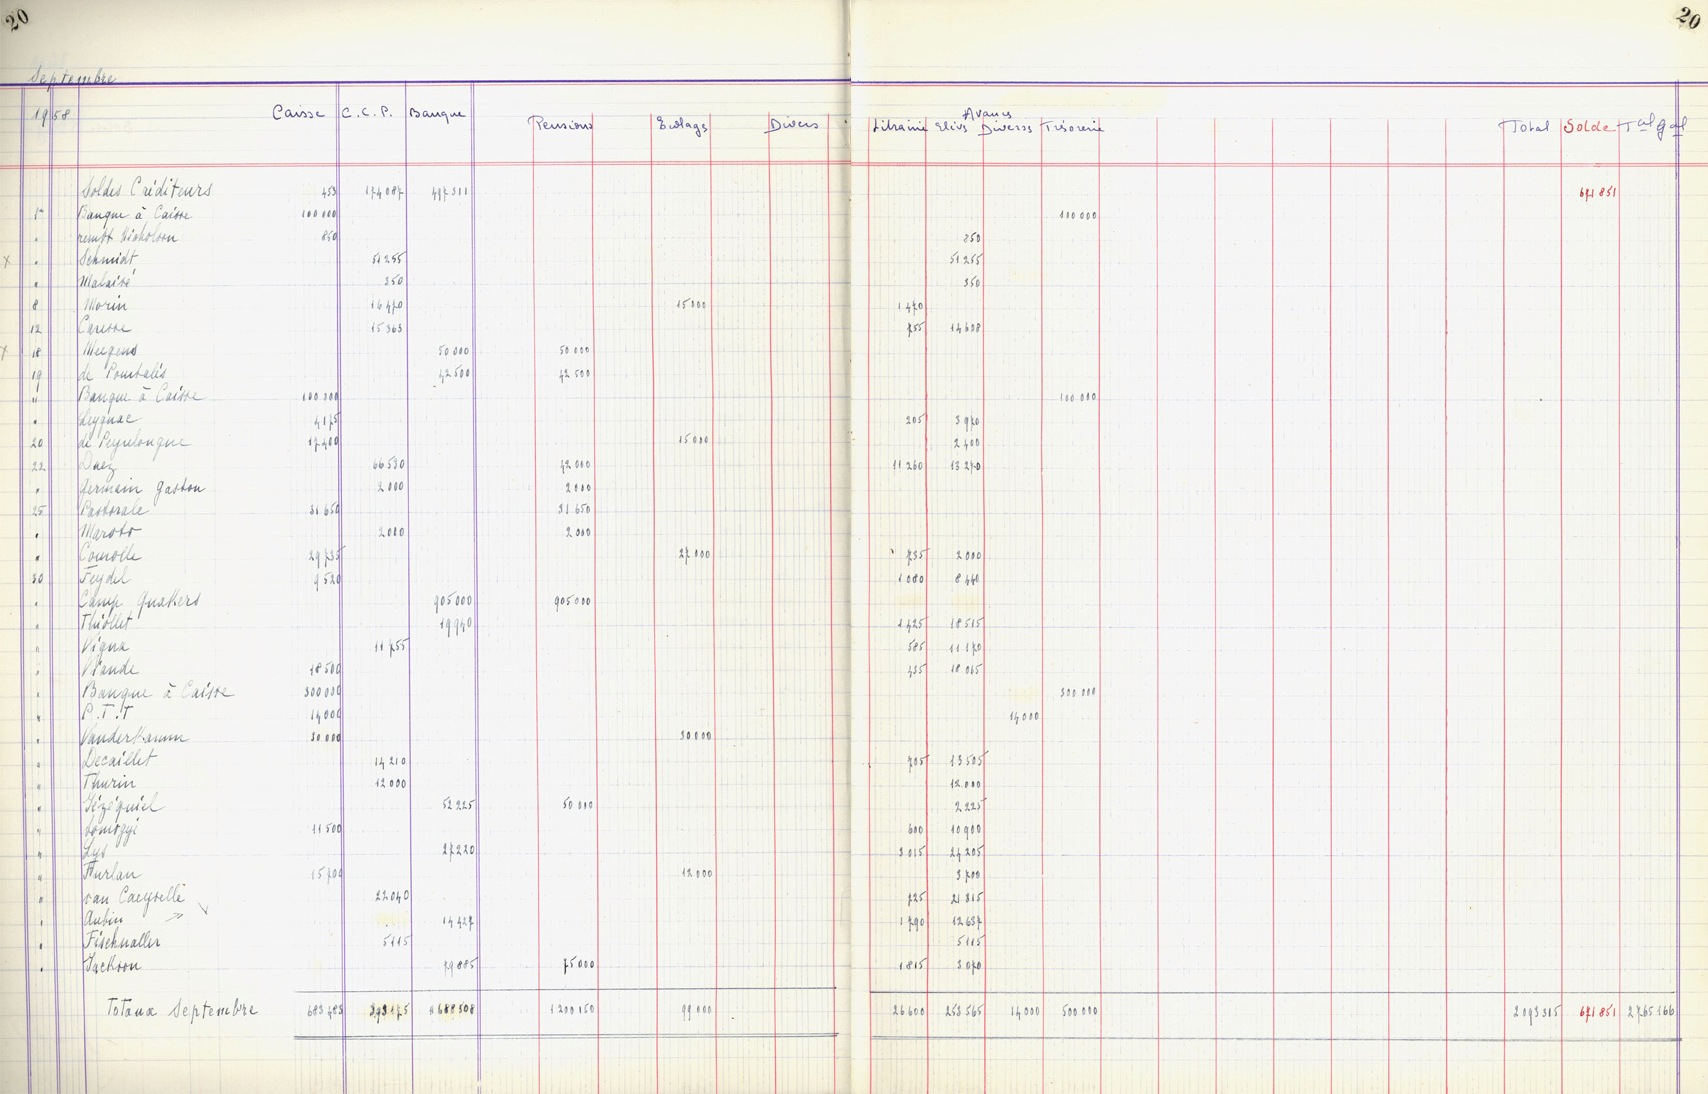 20 20
Septembre
1958 Caisse C.C.P. Banque Pensions Ecolages Divers Librairie Elèves Avances Diverses Trésorerie Total Solde Tal gal
Soldes Créditeurs 453 174 087 497 311 671 851
1er Banque à Caisse 100 000 100 000
" rembt Nicholson 850 850
x " Schmidt 51 255 51 255
" Malaisé 350 350
8 Morin 16 470 15 000 1 470
12 Carisse 15 363 755 14 608
x 18 Meegens 50 000 50 000
19 de Pourtalès 42 500 42 500
" Banque à Caisse 100 000 100 000
" Leygnac 4 175 205 3 970
20 de Peyrelongue 17 400 15 000 2 400
22 Duez 66 530 42 000 11 260 13 270
" Germain Gaston 2 000 2 000
25 Pastorale 31 650 31 650
" Maroto 2 000 2 000
" Courolle 29 735 27 000 735 2 000
30 Feydel 9 520 1 080 8 440
" Camp Quakers 905 000 905 000
" Thiollet 19 940 1 425 18 515
" Vigna 11 755 585 11 170
" Viande 18 500 435 18 065
" Banque à Caisse 300 000 300 000
" P.T.T 14 000 14 000
" Vanderhamm 30 000 30 000
" Decaillet 14 210 705 13 505
" Thurin 12 000 12 000
" Gézéquiel 52 225 50 000 2 225
" Lomözyi 11 500 600 10 900
" Lys 27 220 3 015 24 205
" Furlan 15 700 12 000 3 700
" van Caeyselle 22 040 725 21 315
" Aubin 14 427 1 790 12 637
" Fischnaller 5 115 5 115
" Jackson 79 885 75 000 1 815 3 070
Totaux Septembre 683 483 393 175 1 688 508 1 200 150 99 000 26 600 253 565 14 000 500 000 2 093 315 671 851 2 765 166